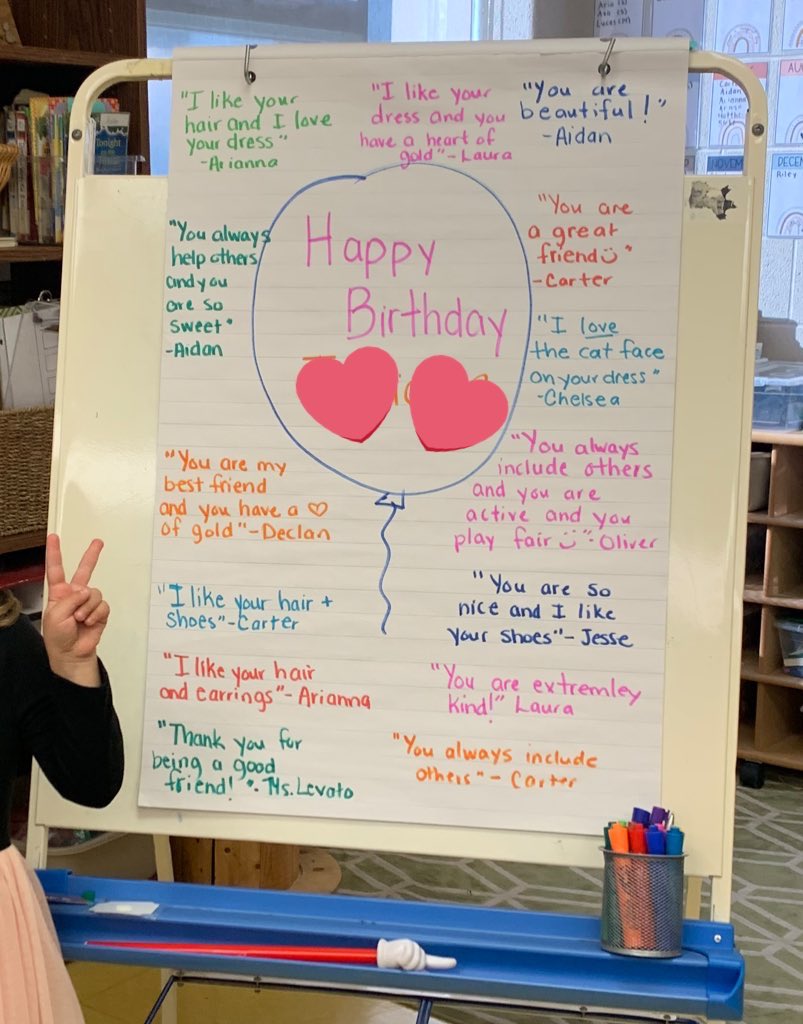 "I like your
hair and I love
your dress"
-Arianna
"I like your
dress and you
have a heart of
gold"-Laura
"You are
beautiful!"
-Aidan
"You always
help others
and you
are so
sweet"
-Aidan
Happy
Birthday
"You are
a great
friend"
-Carter
"I love
the cat face
on your dress"
-Chelsea
"You are my
best friend
and you have a ♡
of gold"-Declan
"You always
include others
and you are
active and you
play fair"-Oliver
"I like your hair +
shoes"-Carter
"You are so
nice and I like
your shoes"-Jesse
"I like your hair
and earrings"-Arianna
"You are extremley
kind!" Laura
"Thank you for
being a good
friend!"-Ms. Levato
"You always include
others"-Carter
Tonight
Riley